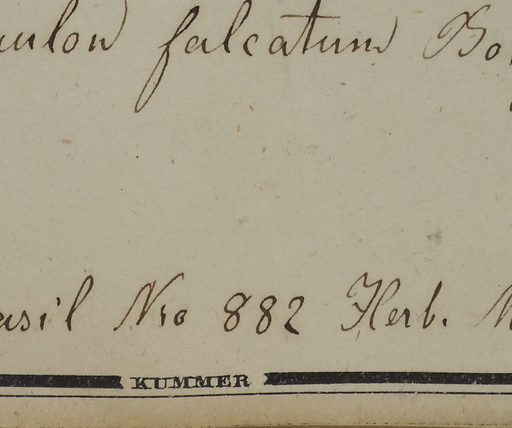 aulon falcatum Bo
asil No 882 Herb. M
KUMMER